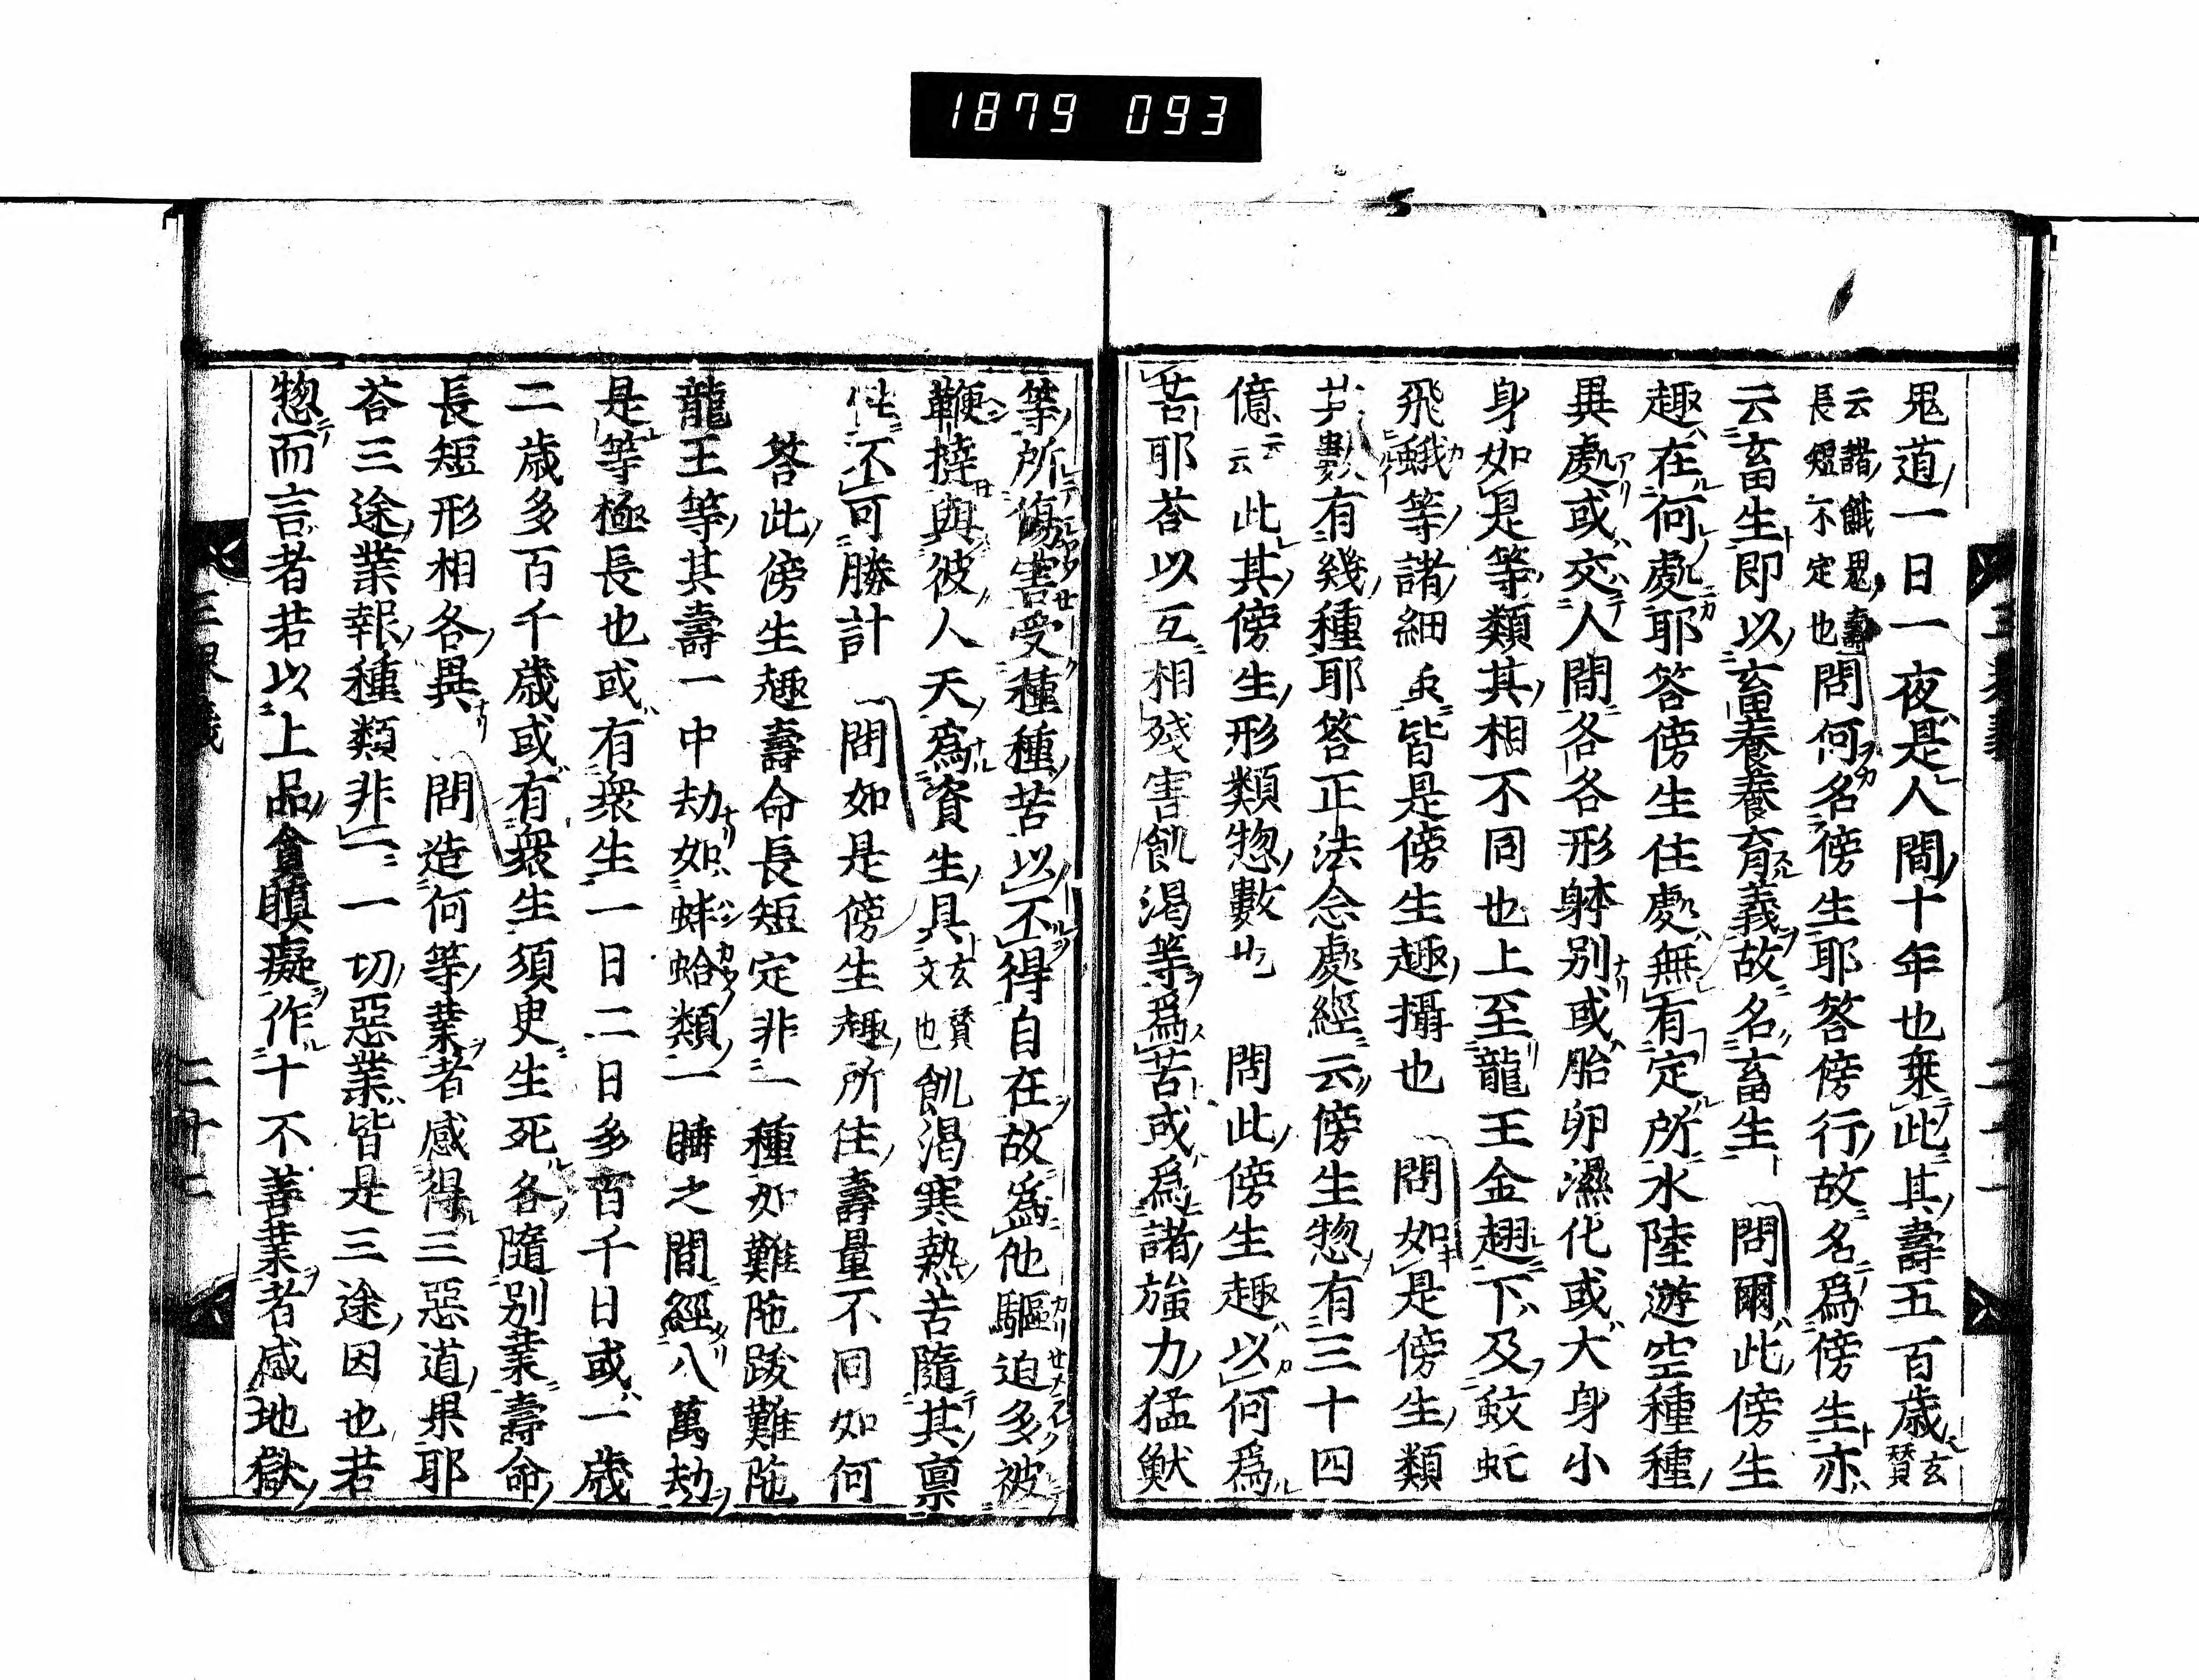 1879 093
鬼道一日一夜是人間十年也乘此其壽五百歳玄賛
云諸餓鬼壽長短不定也問何名傍生耶答傍行故名爲傍生亦
云畜生即以畜養養育義故名畜生 問爾此傍生
趣在何處耶答傍生住處無有定所水陸遊空種種
異處或交人間各各形躰別或胎卵濕化或大身小
身如是等類其相不同也上至龍王金翅下及蚊虻
飛蛾等諸細虫皆是傍生趣攝也 問如是傍生類
其數有幾種耶答正法念處經云傍生惣有三十四
億云云此其傍生形類惣數也 問此傍生趣以何爲
苦耶荅以互相殘害飢渴等爲苦或爲諸強力猛獣
等所傷害受種種苦以不得自在故爲他驅迫多被
鞭撻與彼人天爲資生具玄賛文也飢渴寒熱苦隨其禀
性不可勝計 問如是傍生趣所住壽量不同如何
答此傍生趣壽命長短定非一種如難陁跋難陁
龍王等其壽一中劫如蚌蛤類一睡之間經八萬劫
是等極長也或有衆生一日二日多百千日或一歳
二歳多百千歳或有衆生須臾生死各隨別業壽命
長短形相各異 問造何等業者感得三惡道果耶
荅三途業報種類非一一切惡業皆是三途因也若
惣而言者若以上品貪瞋癡作十不善業者感地獄
三界義
二十二